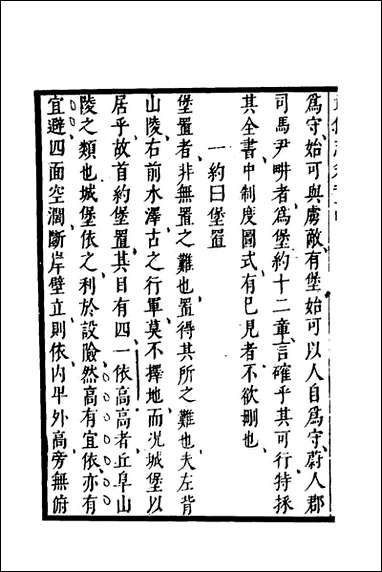 爲守始可與虜敵有堡始可以人自爲守蔚人郡
司馬尹畊者爲堡約十二章言確乎其可行特採
其全書中制度圖式有已見者不欲刪也
一約曰堡置
堡置者非無置之難也置得其所之難也夫左背
山陵右前水澤古之行軍莫不擇地而况城堡以
居乎故首約堡置其目有四一依高高者丘阜山
陵之類也城堡依之利於設險然高有宜依亦有
宜避四面空濶斷岸壁立則依内平外高旁無俯